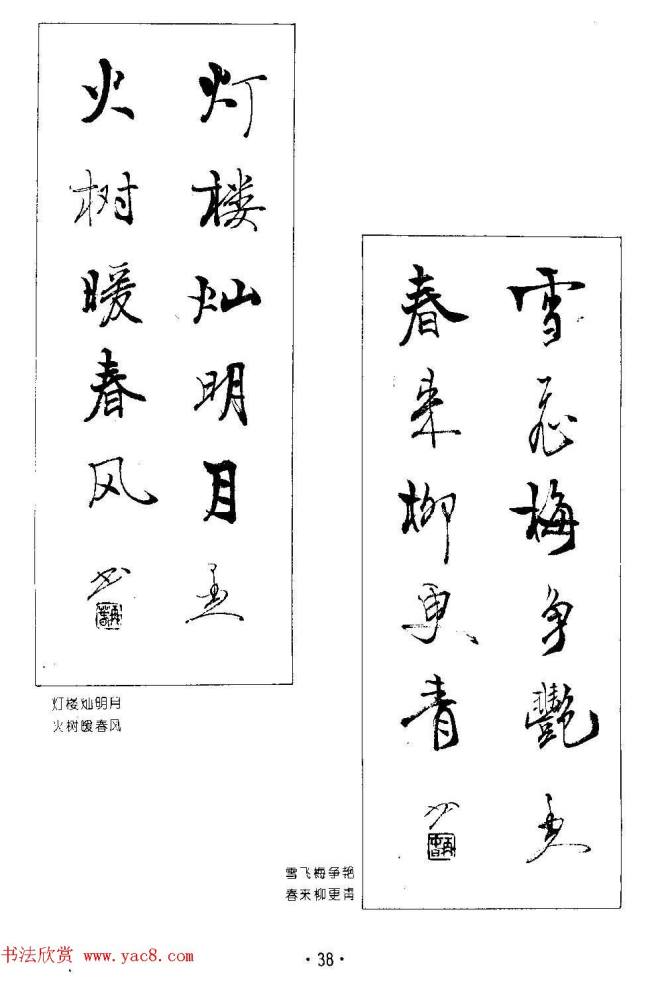 灯楼灿明月
火树暖春风
书
灯楼灿明月
火树暖春风
雪飞梅争艳
春来柳更青
雪飞梅争艷
春来柳更青
书
书法欣赏 www.yac8.com
·38·